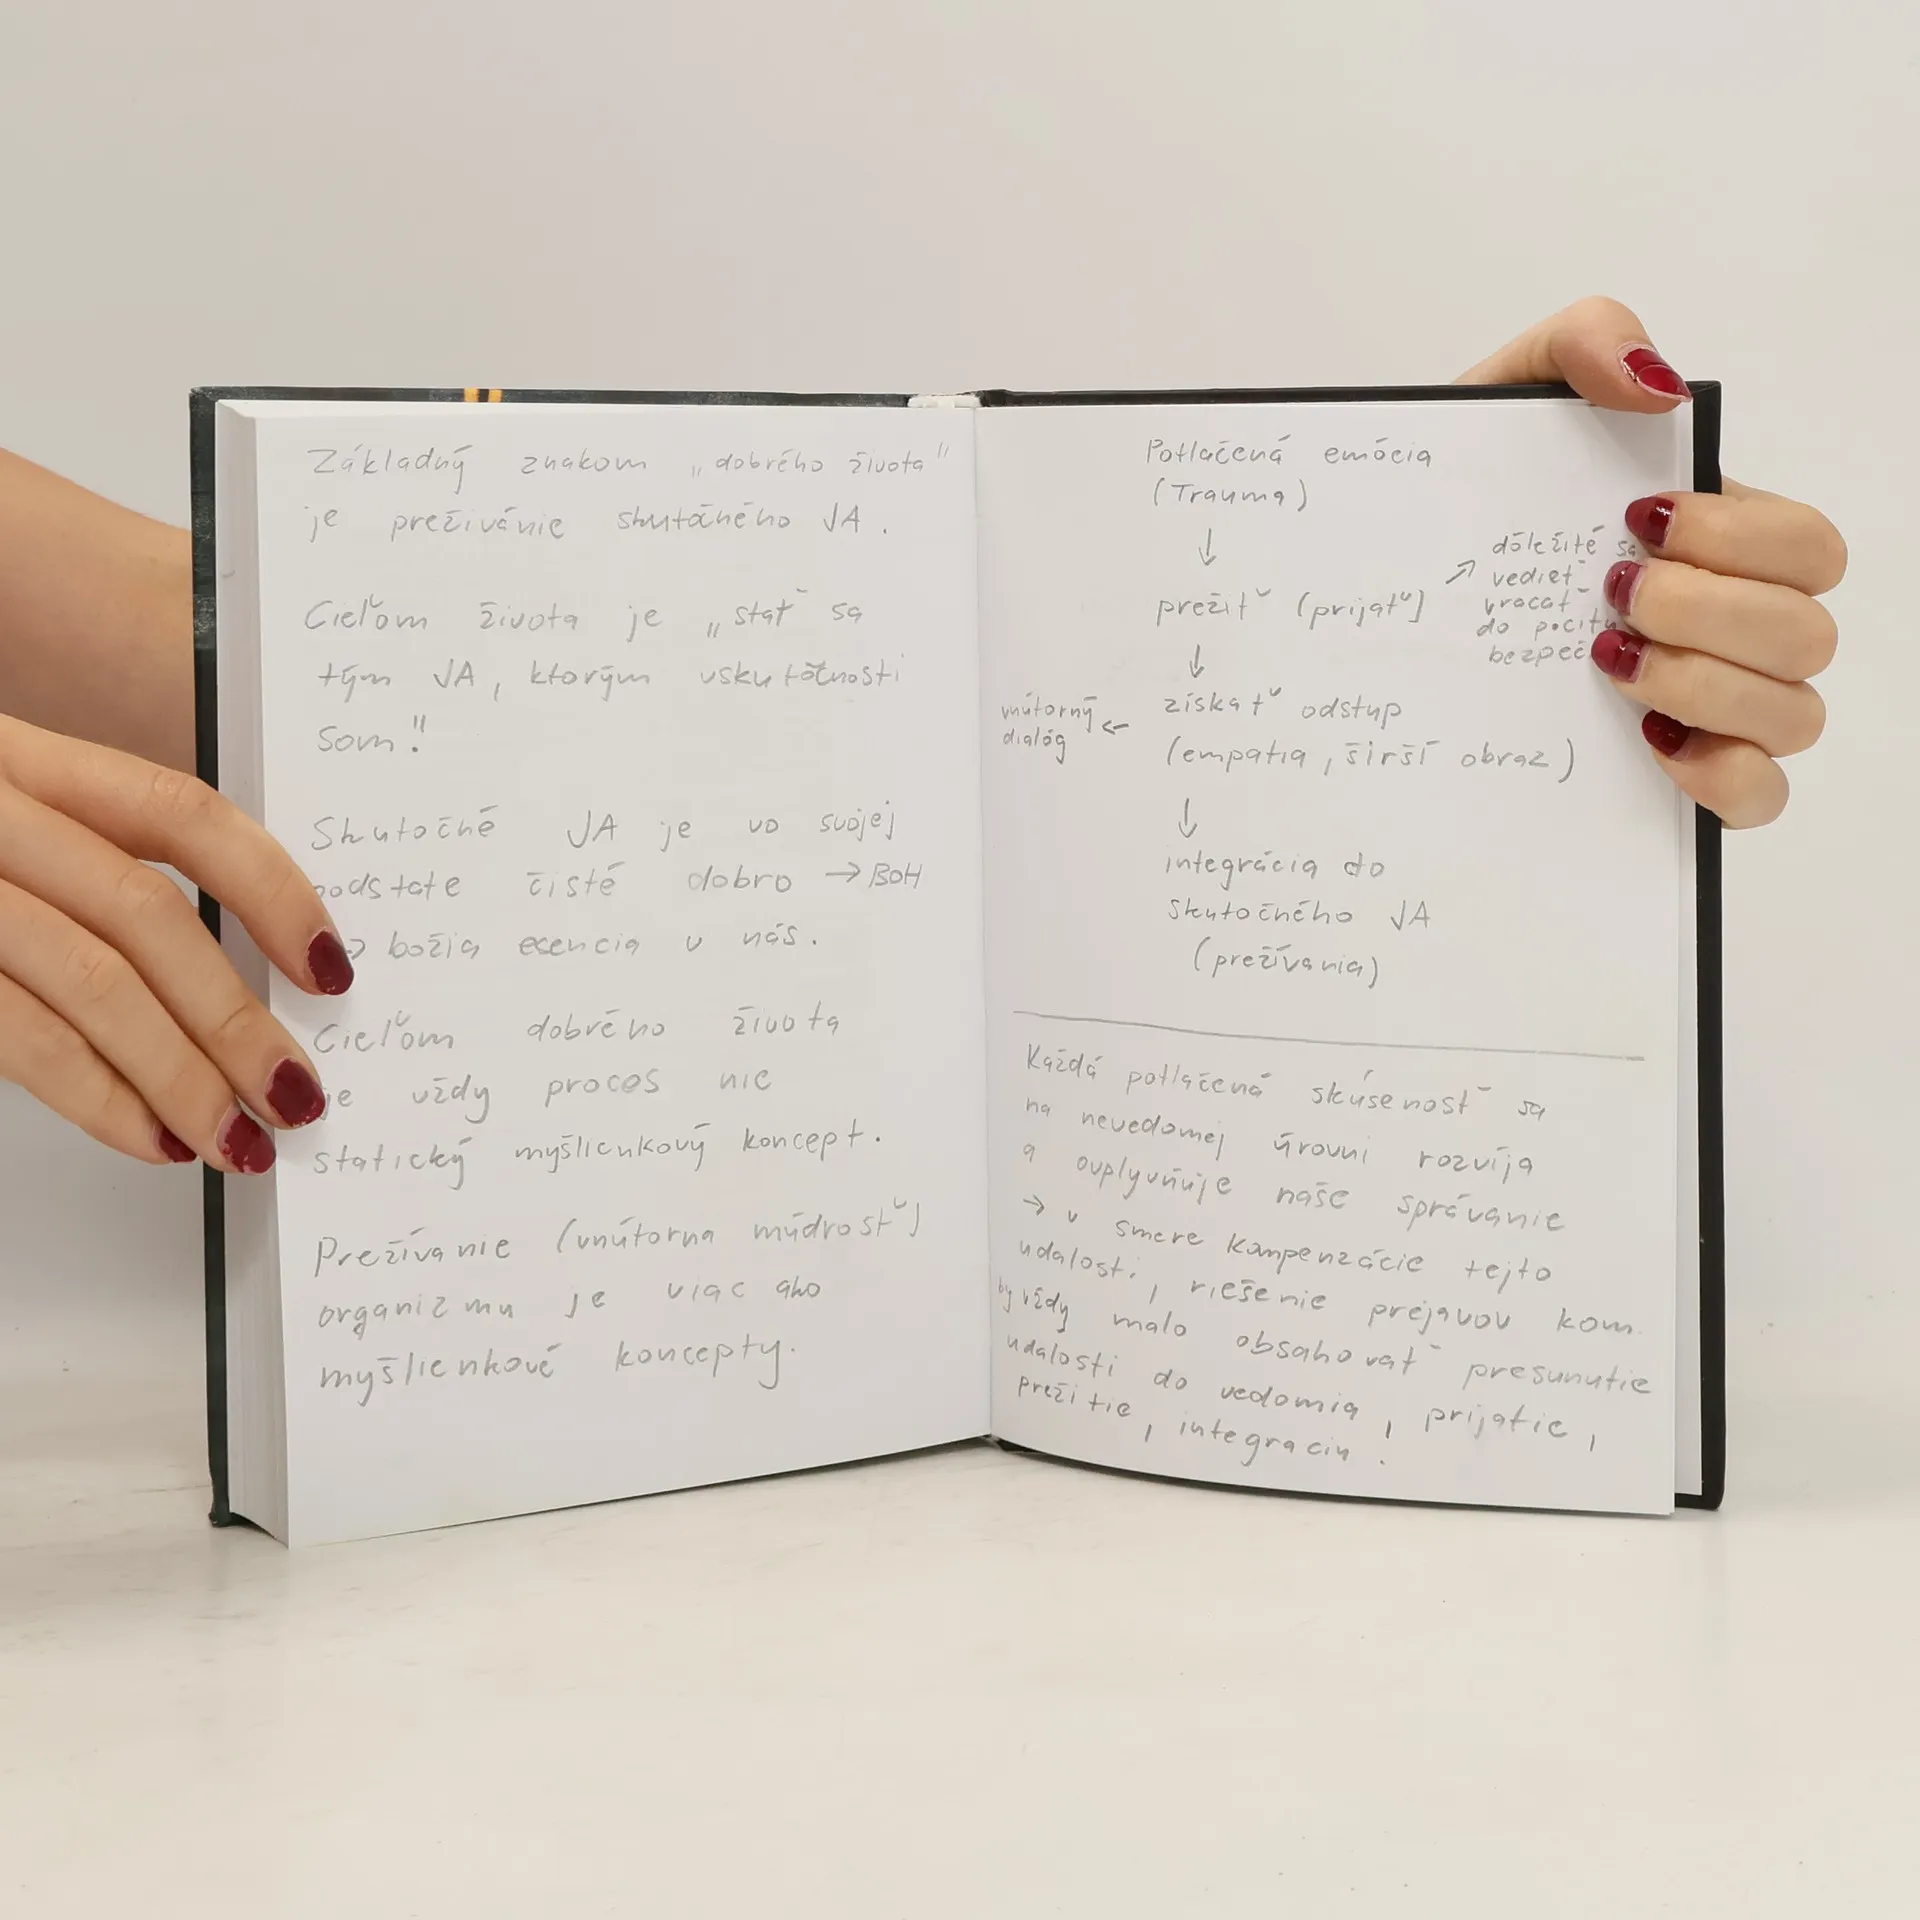 Základný znakom „dobrého života"
je prežívánie skutočného JA.
Cieľom života je „stať sa
tým JA, ktorým vskutočnosti
som!"
Skutočné JA je vo svojej
podstate čisté dobro → BOH
→ božia esencia v nás.
Cieľom dobrého života
je vždy proces nie
statický myšlienkový koncept.
Prežívanie (vnútorna múdrosť)
organizmu je viac ako
myšlienkové koncepty.
Potlačená emócia
(Trauma)
↓
prežiť (prijať)
↗ dôležité sa
vedieť
vracať
do pocitu
bezpeč
↓
získať odstup
(empatia, širší obraz)
← vnútorný
dialóg
↓
integrácia do
skutočného JA
(prežívania)
Každá potlačená skúsenosť sa
na nevedomej úrovni rozvíja
a ovplyvňuje naše správanie
→ v smere kompenzácie tejto
udalosti, riešenie prejavov kom.
by vždy malo obsahovať presunutie
udalosti do vedomia, prijatie,
prežitie, integraciu.